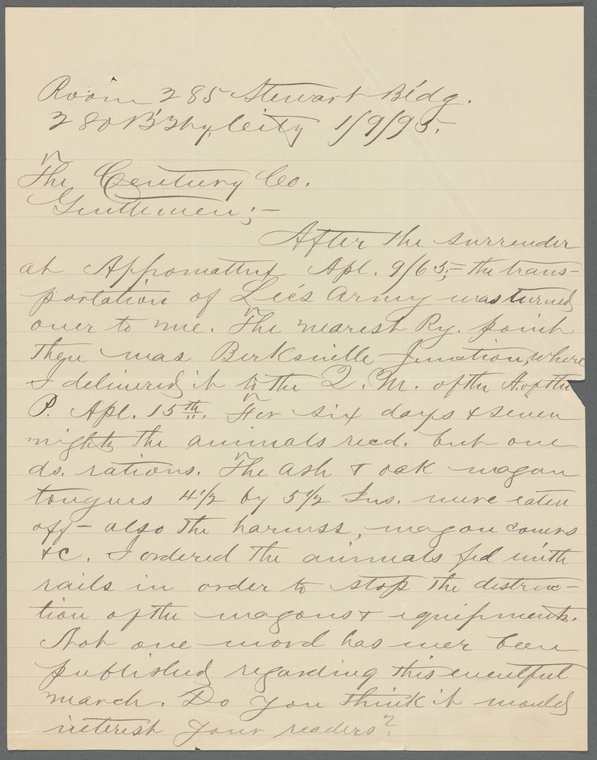 Room 285 Stewart Bldg.
280 B'way City 1/9/95.
The Century Co.
Gentlemen;-
After the surrender
at Appomattox Apl. 9/65;- the trans-
portation of Lee's Army was turned
over to me. The nearest Ry. point
then was Berksville Junction, where
I delivered it to the Q. M. of the A. of the
P. Apl. 15th. For six days & seven
nights the animals recd. but one
ds. rations. The ash & oak wagon
tongues 4 1/2 by 5 1/2 Ins. were eaten
off - also the harness, wagon covers
&c. I ordered the animals fed with
rails in order to stop the destruc-
tion of the wagons & equipments.
Not one word has ever been
published regarding this eventful
march. Do you think it would
interest your readers?